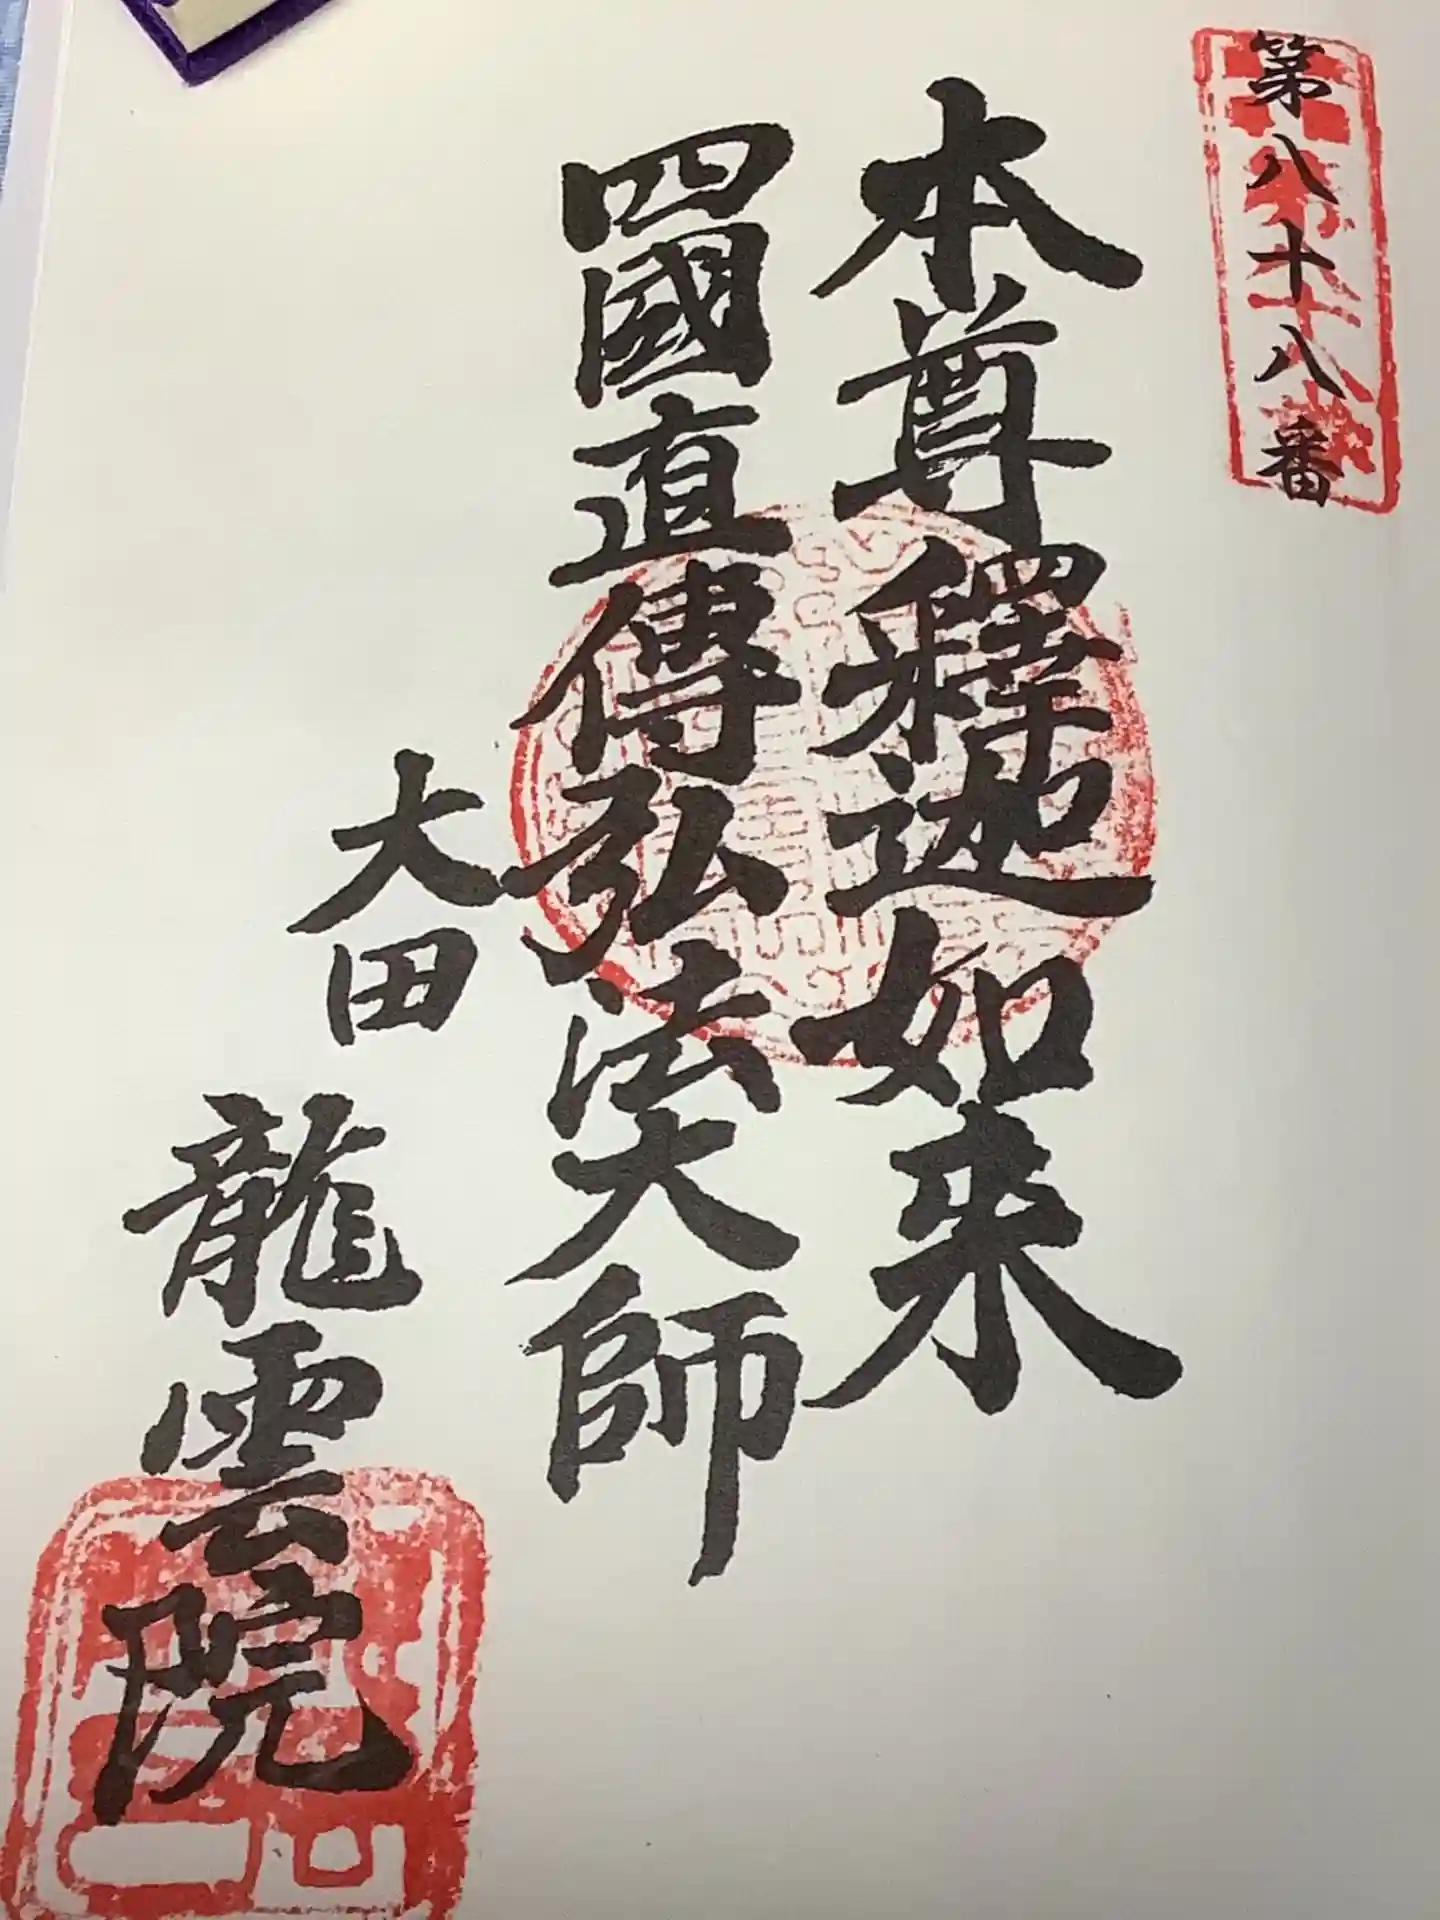 第八十八番
本尊釋迦如来
四國直傳弘法大師
大田
龍雲院